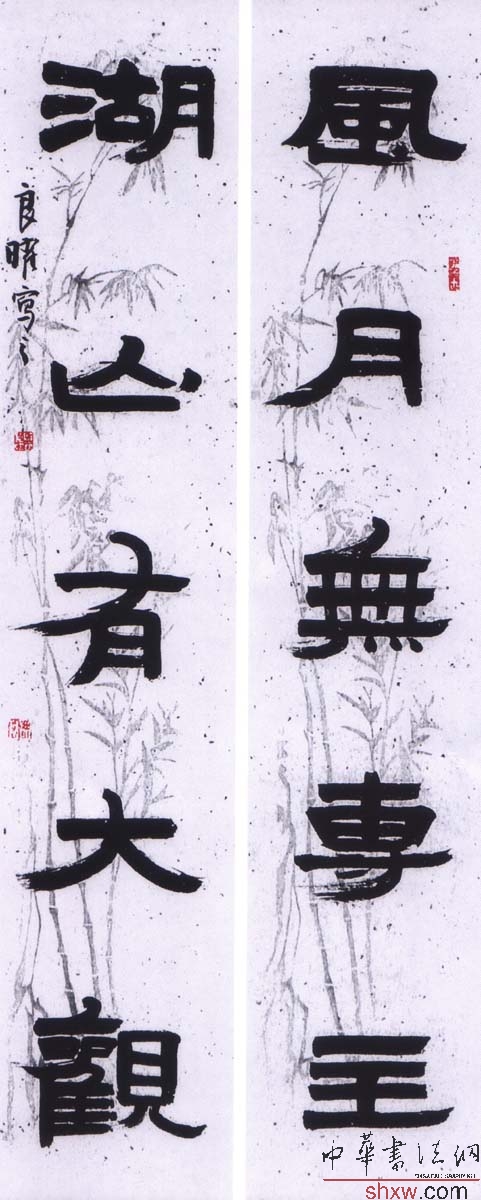 風月無專主
湖山有大觀
良曙寫之
中華書法網
shxw.com